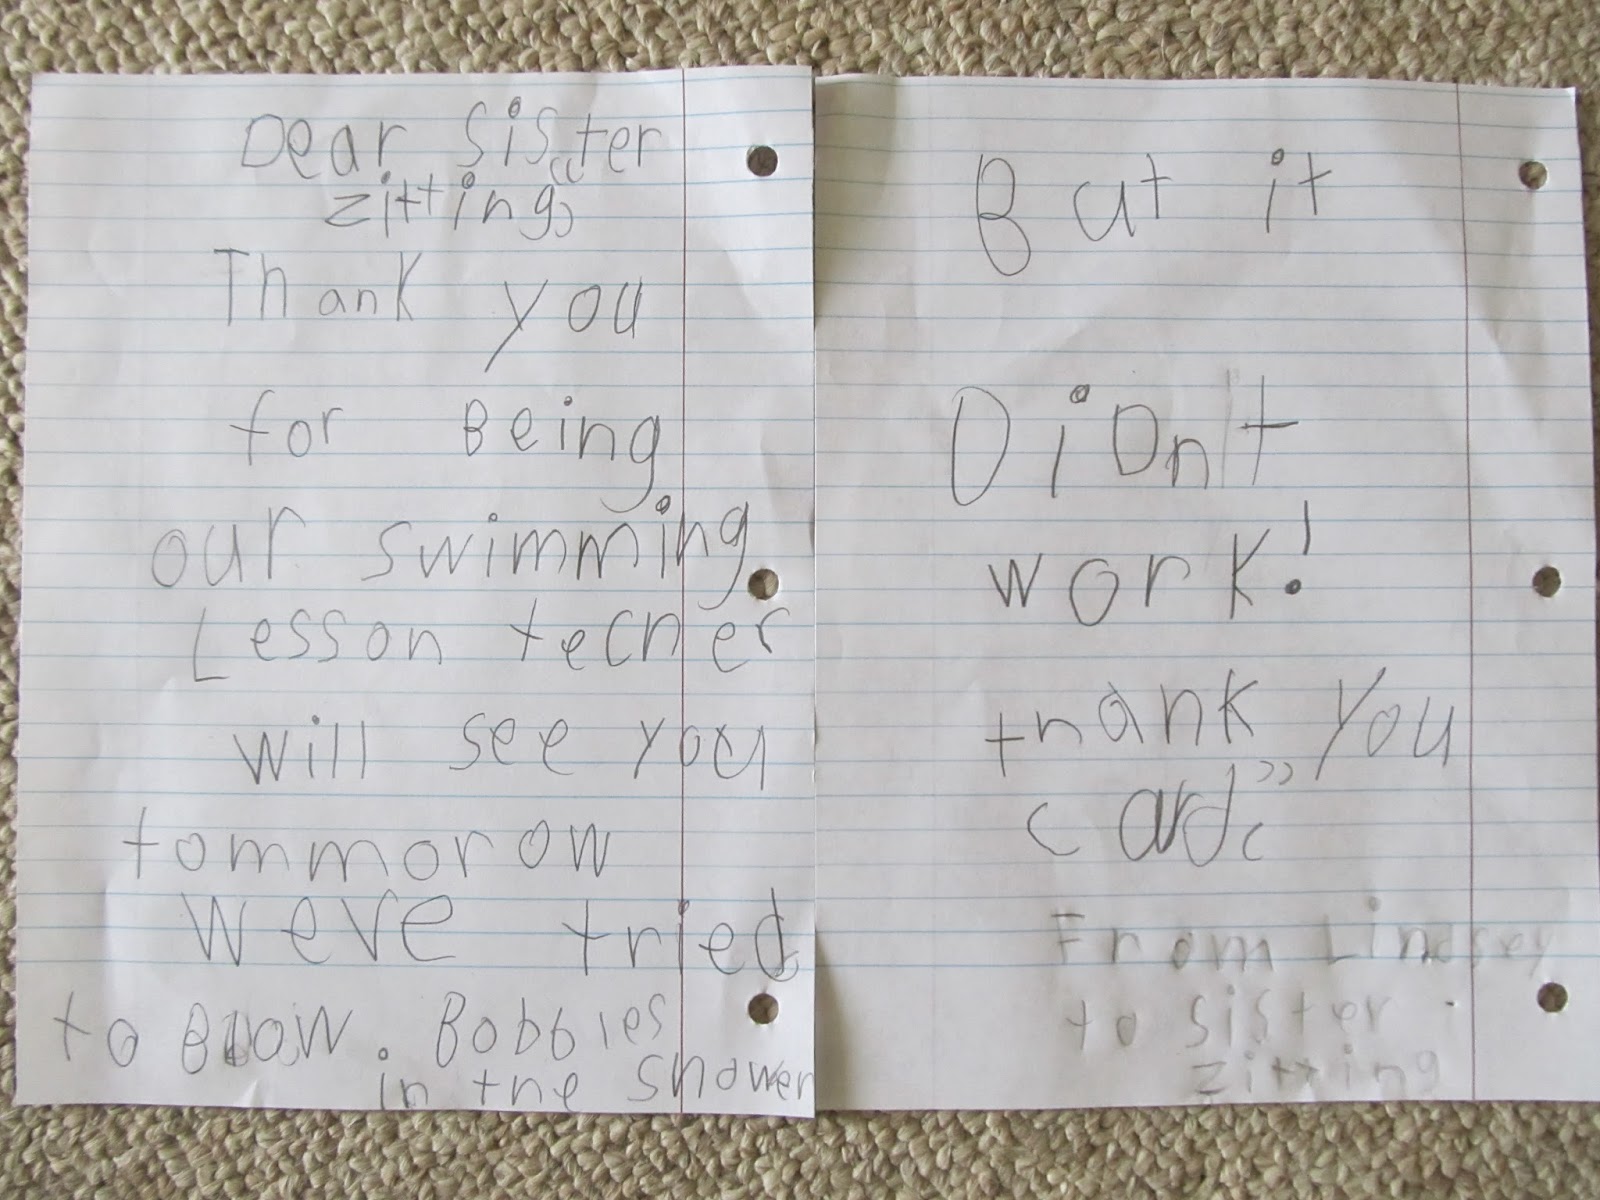 Dear Sister
zitting,
Thank you
for Being
our swimming
Lesson tecner
will see you
tommorow
weve tried
to Blow. Bobbies
in the shower
But it
Didn't
work!
thank you
card
From Lindsey
to sister
zitting